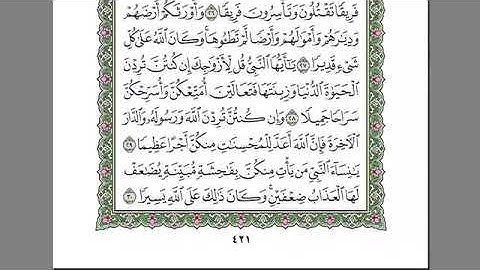 فَرِيقًا تَقْتُلُونَ وَتَأْسِرُونَ فَرِيقًا ٢٦ وَأَوْرَثَكُمْ أَرْضَهُمْ
وَدِيَٰرَهُمْ وَأَمْوَٰلَهُمْ وَأَرْضًا لَّمْ تَطَـُٔوهَا ۚ وَكَانَ ٱللَّهُ عَلَىٰ كُلِّ
شَىْءٍ قَدِيرًا ٢٧ يَٰٓأَيُّهَا ٱلنَّبِىُّ قُل لِّأَزْوَٰجِكَ إِن كُنتُنَّ تُرِدْنَ
ٱلْحَيَوٰةَ ٱلدُّنْيَا وَزِينَتَهَا فَتَعَالَيْنَ أُمَتِّعْكُنَّ وَأُسَرِّحْكُنَّ
سَرَاحًا جَمِيلًا ٢٨ وَإِن كُنتُنَّ تُرِدْنَ ٱللَّهَ وَرَسُولَهُۥ وَٱلدَّارَ
ٱلْءَاخِرَةَ فَإِنَّ ٱللَّهَ أَعَدَّ لِلْمُحْسِنَٰتِ مِنكُنَّ أَجْرًا عَظِيمًا ٢٩
يَٰنِسَآءَ ٱلنَّبِىِّ مَن يَأْتِ مِنكُنَّ بِفَٰحِشَةٍ مُّبَيِّنَةٍ يُضَٰعَفْ
لَهَا ٱلْعَذَابُ ضِعْفَيْنِ ۚ وَكَانَ ذَٰلِكَ عَلَى ٱللَّهِ يَسِيرًا ٣٠
٤٢١